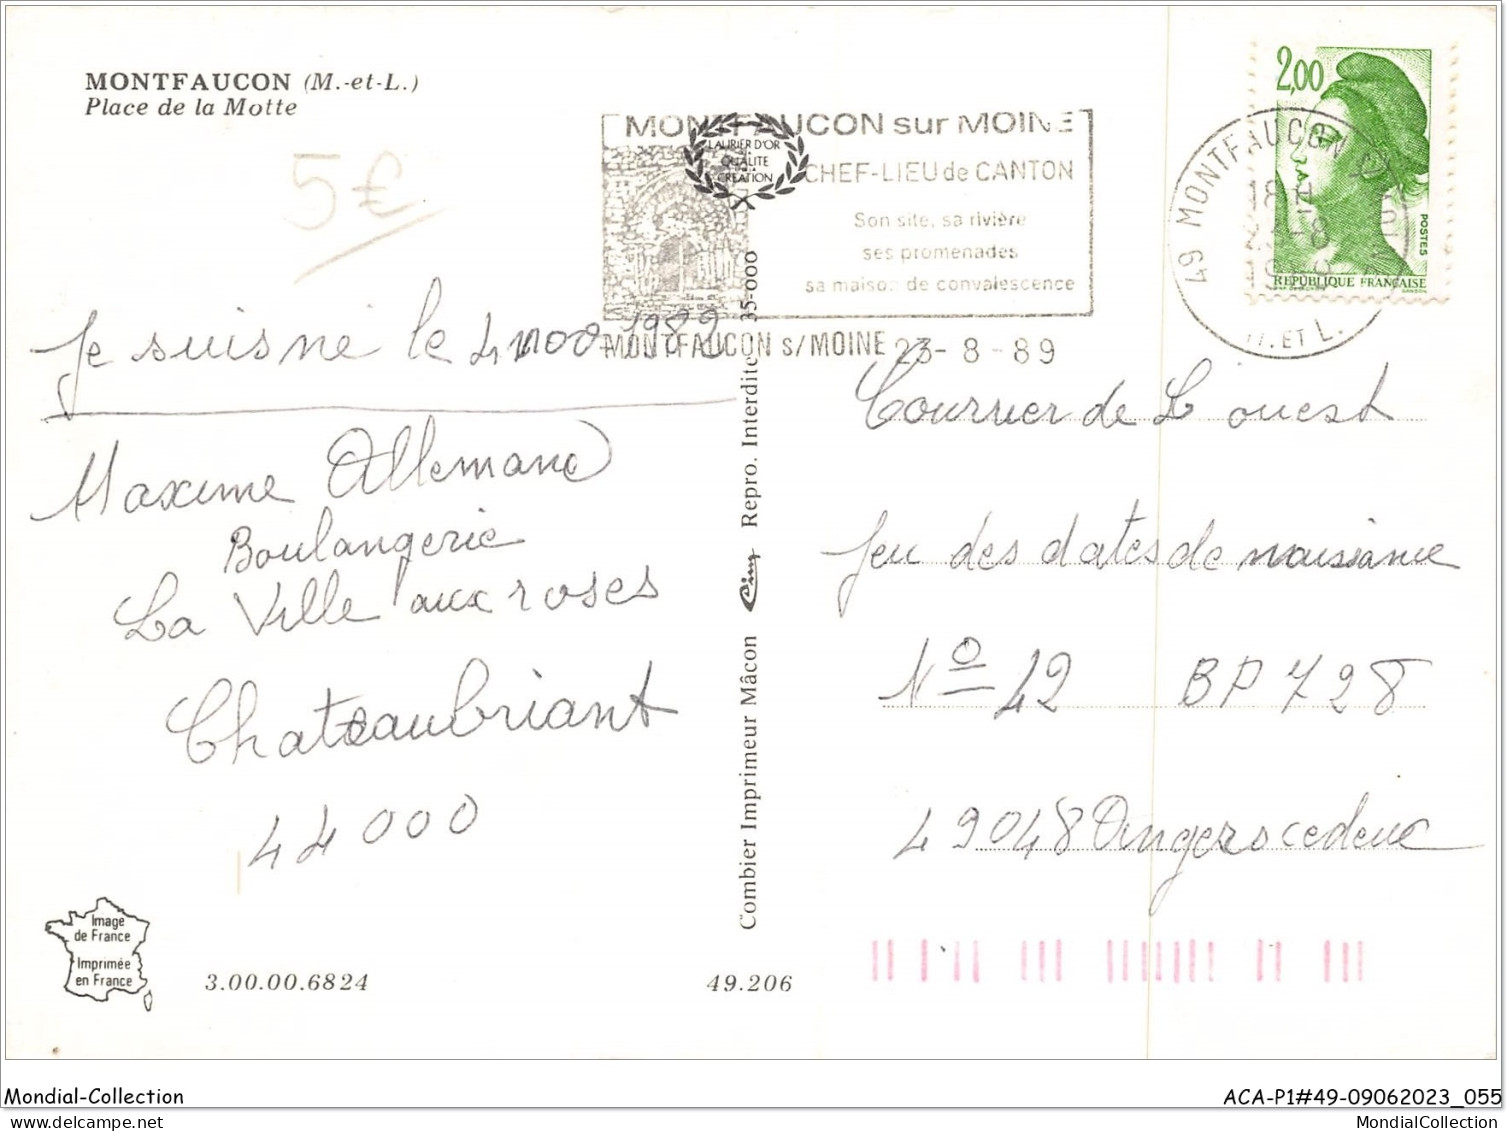 MONTFAUCON (M.-et-L.)
Place de la Motte
5€
MONTFAUCON sur MOINE
CHEF-LIEU de CANTON
Son site, sa rivière
ses promenades
sa maison de convalescence
MONTFAUCON s/MOINE 23-8-89
LAURIER D'OR
QUALITÉ
CRÉATION
2,00
POSTES
RÉPUBLIQUE FRANÇAISE
49 MONTFAUCON
18 H
M. ET L.
Je suis né le 4 1989
Maxime Allemand
Boulangerie
La Ville aux roses
Chateaubriant
44000
Courrier de L'ouest
Jeu des dates de naissance
N° 42 BP 728
49048 Angers cedex
Combier Imprimeur Mâcon Cim Repro. Interdite 35-000
Image
de France
Imprimée
en France
3.00.00.6824
49.206
Mondial-Collection
ACA-P1#49-09062023_055
www.delcampe.net
MondialCollection